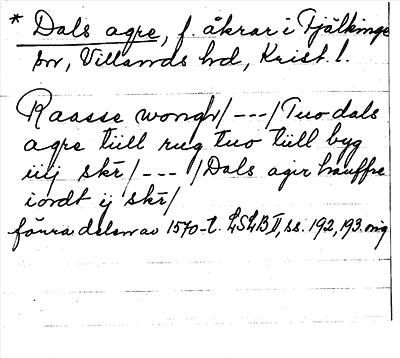 * Dals agre, f. åkrar i Fjälkinge
sn, Villands hd, Krist. l.
Raasse wongh/---/Tuo dals
agre tiill rug tuo tiill byg
iiij skr/---/Dals ager hauffre
iordt ij skr/
förra delen av 1570-t. LSLB II, ss. 192, 193. orig